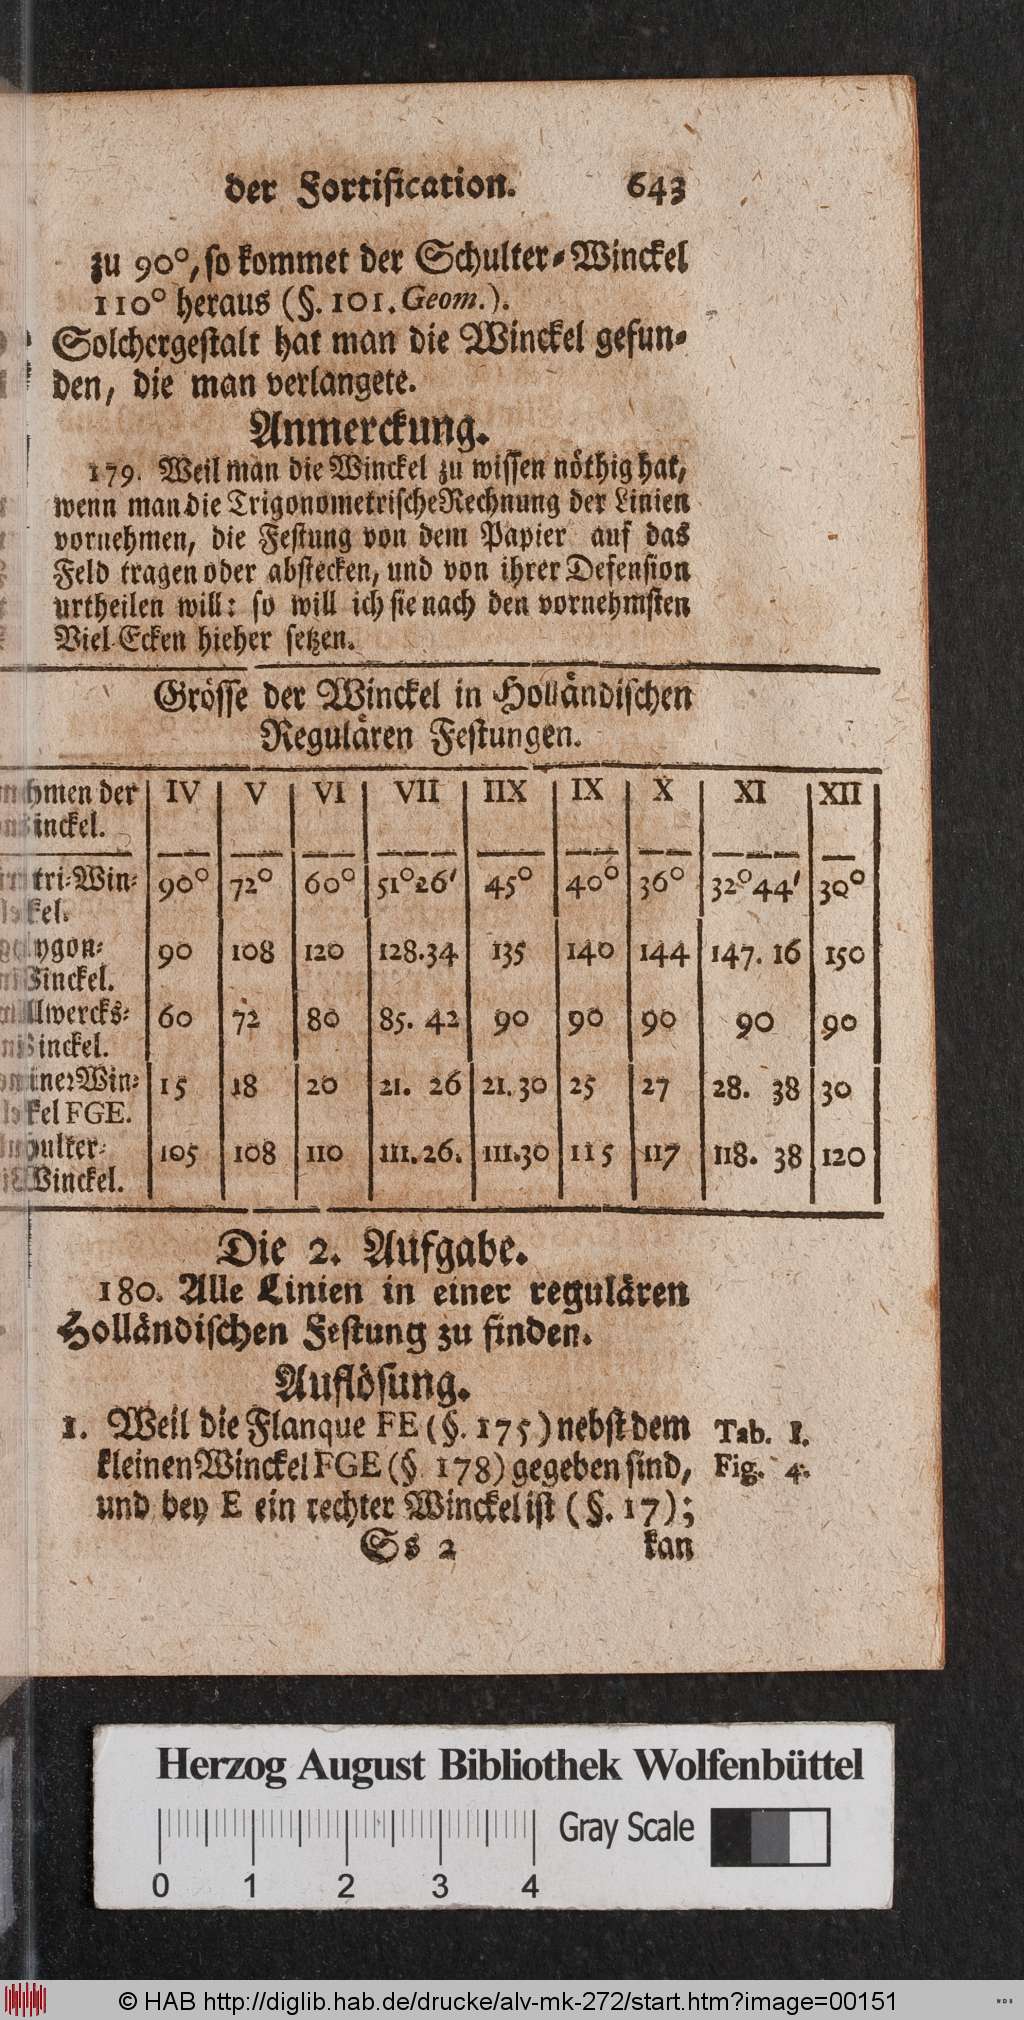 der Fortification. 643
zu 90°, so kommet der Schulter-Winckel
110° heraus (§. 101. Geom.).
Solchergestalt hat man die Winckel gefun-
den, die man verlangete.
Anmerckung.
179. Weil man die Winckel zu wissen nöthig hat,
wenn man die Trigonometrische Rechnung der Linien
vornehmen, die Festung von dem Papier auf das
Feld tragen oder abstecken, und von ihrer Defension
urtheilen will: so will ich sie nach den vornehmsten
Viel-Ecken hieher setzen.
Grösse der Winckel in Holländischen
Regulären Festungen.
hmen der IV V VI VII IIX IX X XI XII
inckel.
tri-Win- 90° 72° 60° 51°26' 45° 40° 36° 32°44' 30°
kel.
ygon- 90 108 120 128.34 135 140 144 147. 16 150
inckel.
llwercks- 60 72 80 85. 42 90 90 90 90 90
inckel.
iner Win- 15 18 20 21. 26 21.30 25 27 28. 38 30
kel FGE.
ulter- 105 108 110 111.26. 111.30 115 117 118. 38 120
Winckel.
Die 2. Aufgabe.
180. Alle Linien in einer regulären
Holländischen Festung zu finden.
Auflösung.
1. Weil die Flanque FE (§. 175) nebst dem Tab. I.
kleinen Winckel FGE (§ 178) gegeben sind, Fig. 4.
und bey E ein rechter Winckel ist (§. 17);
Ss 2 kan
Herzog August Bibliothek Wolfenbüttel
Gray Scale
0 1 2 3 4
© HAB http://diglib.hab.de/drucke/alv-mk-272/start.htm?image=00151